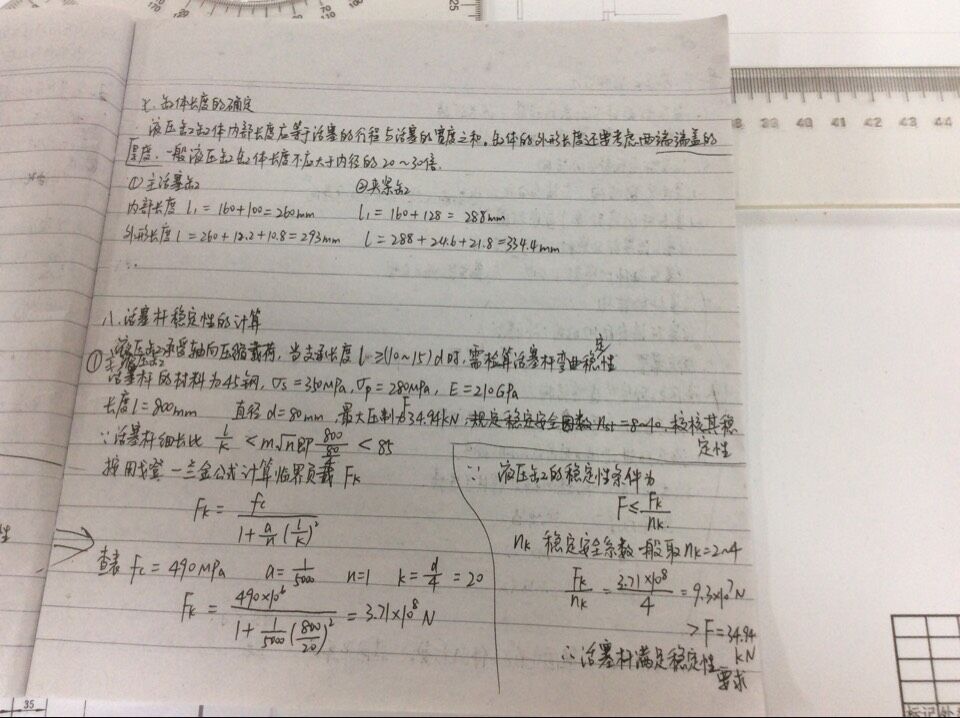 七. 缸体长度的确定
液压缸缸体内部长度应等于活塞的行程与活塞的宽度之和。缸体的外形长度还要考虑两端端盖的
厚度. 一般液压缸缸体长度不应大于内径的20~30倍.
①主活塞缸 ②夹紧缸
内部长度 l₁=160+100=260mm l₁=160+128=288mm
外形长度 l=260+12.2+10.8=293mm l=288+24.6+21.8=334.4mm
八. 活塞杆稳定性的计算
液压缸承受轴向压缩载荷, 当支承长度 l≥(10~15)d 时, 需检算活塞杆弯曲稳定性
①主液压缸
活塞杆的材料为45钢, σs=350MPa, σp=280MPa, E=210GPa
长度l=800mm 直径d=80mm, 最大压力F=34.94kN, 规定稳定安全因数nst=8~10, 校核其稳
定性
∵活塞杆细长比 l/k < m√n即 800/80 < 85
按用戈登—兰金公式计算临界负载 Fk
Fk = fc / (1+a/n(l/k)²)
查表 fc=490MPa a=1/5000 n=1 k=d/4=20
Fk = 490×10⁶ / (1+1/5000(800/20)²) = 3.71×10⁸N
∵ 液压缸的稳定性条件为
F≤Fk/nk
nk 稳定安全系数一般取nk=2~4
Fk/nk = 3.71×10⁸/4 = 9.3×10⁷N
>F=34.94
kN
∴活塞杆满足稳定性
要求
性
35
38 39 40 41 42 43 44
标记 处